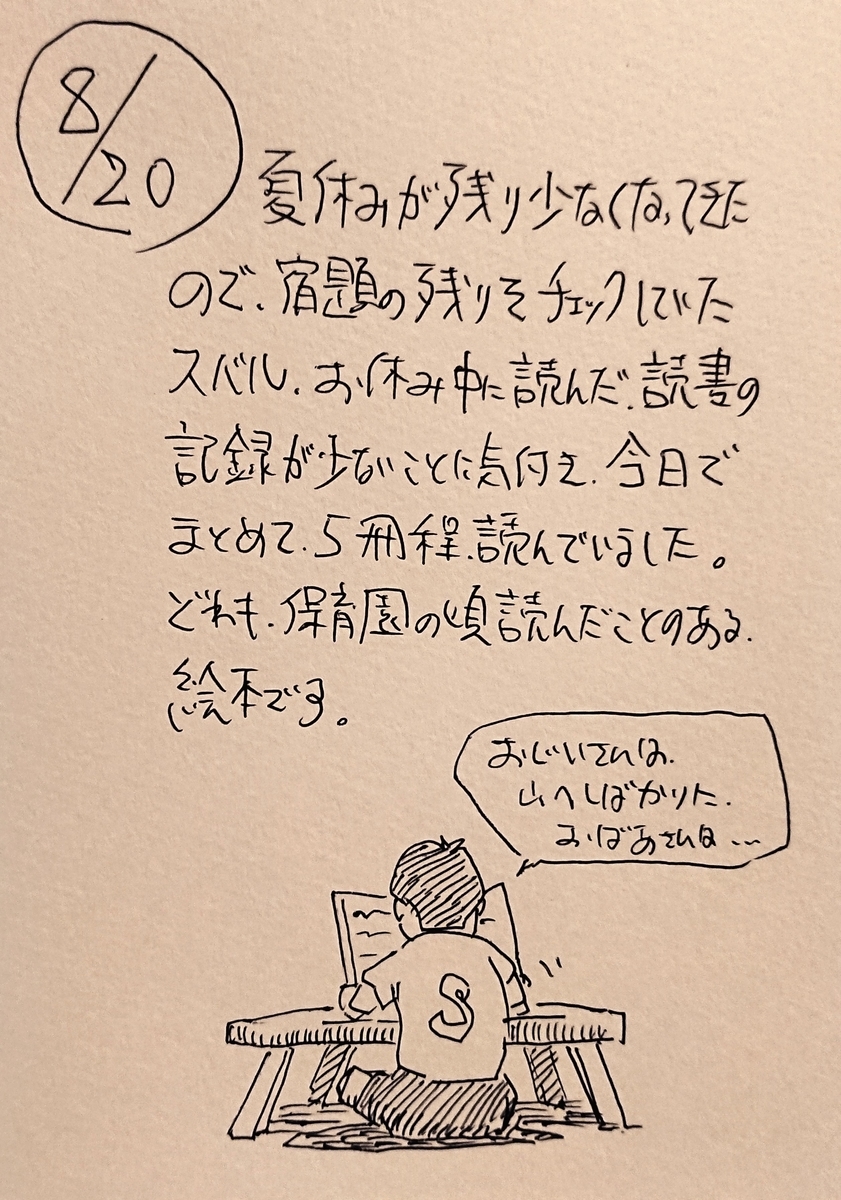 8/20
夏休みが残り少なくなってきた
ので、宿題の残りをチェックしていた
スバル、お休み中に読んだ、読書の
記録が少ないことに気付き、今日で
まとめて、5冊程、読んでいました。
どれも、保育園の頃読んだことのある、
絵本です。
おじいさんは、
山へしばかりに、
おばあさんは…
S